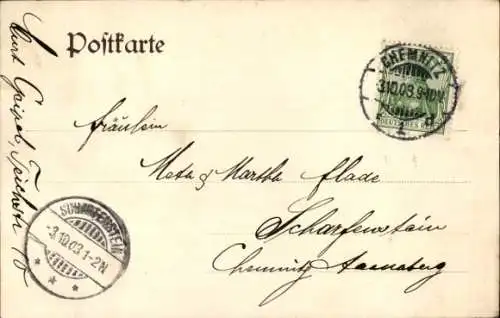 Postkarte
CHEMNITZ
3.10.03.9-10N
DEUTSCHES
Fräulein
Meta & Martha Flade
Scharfenstein
Chemnitz Annaberg
SCHARFENSTEIN
3.10.03.1-2N
Kurt